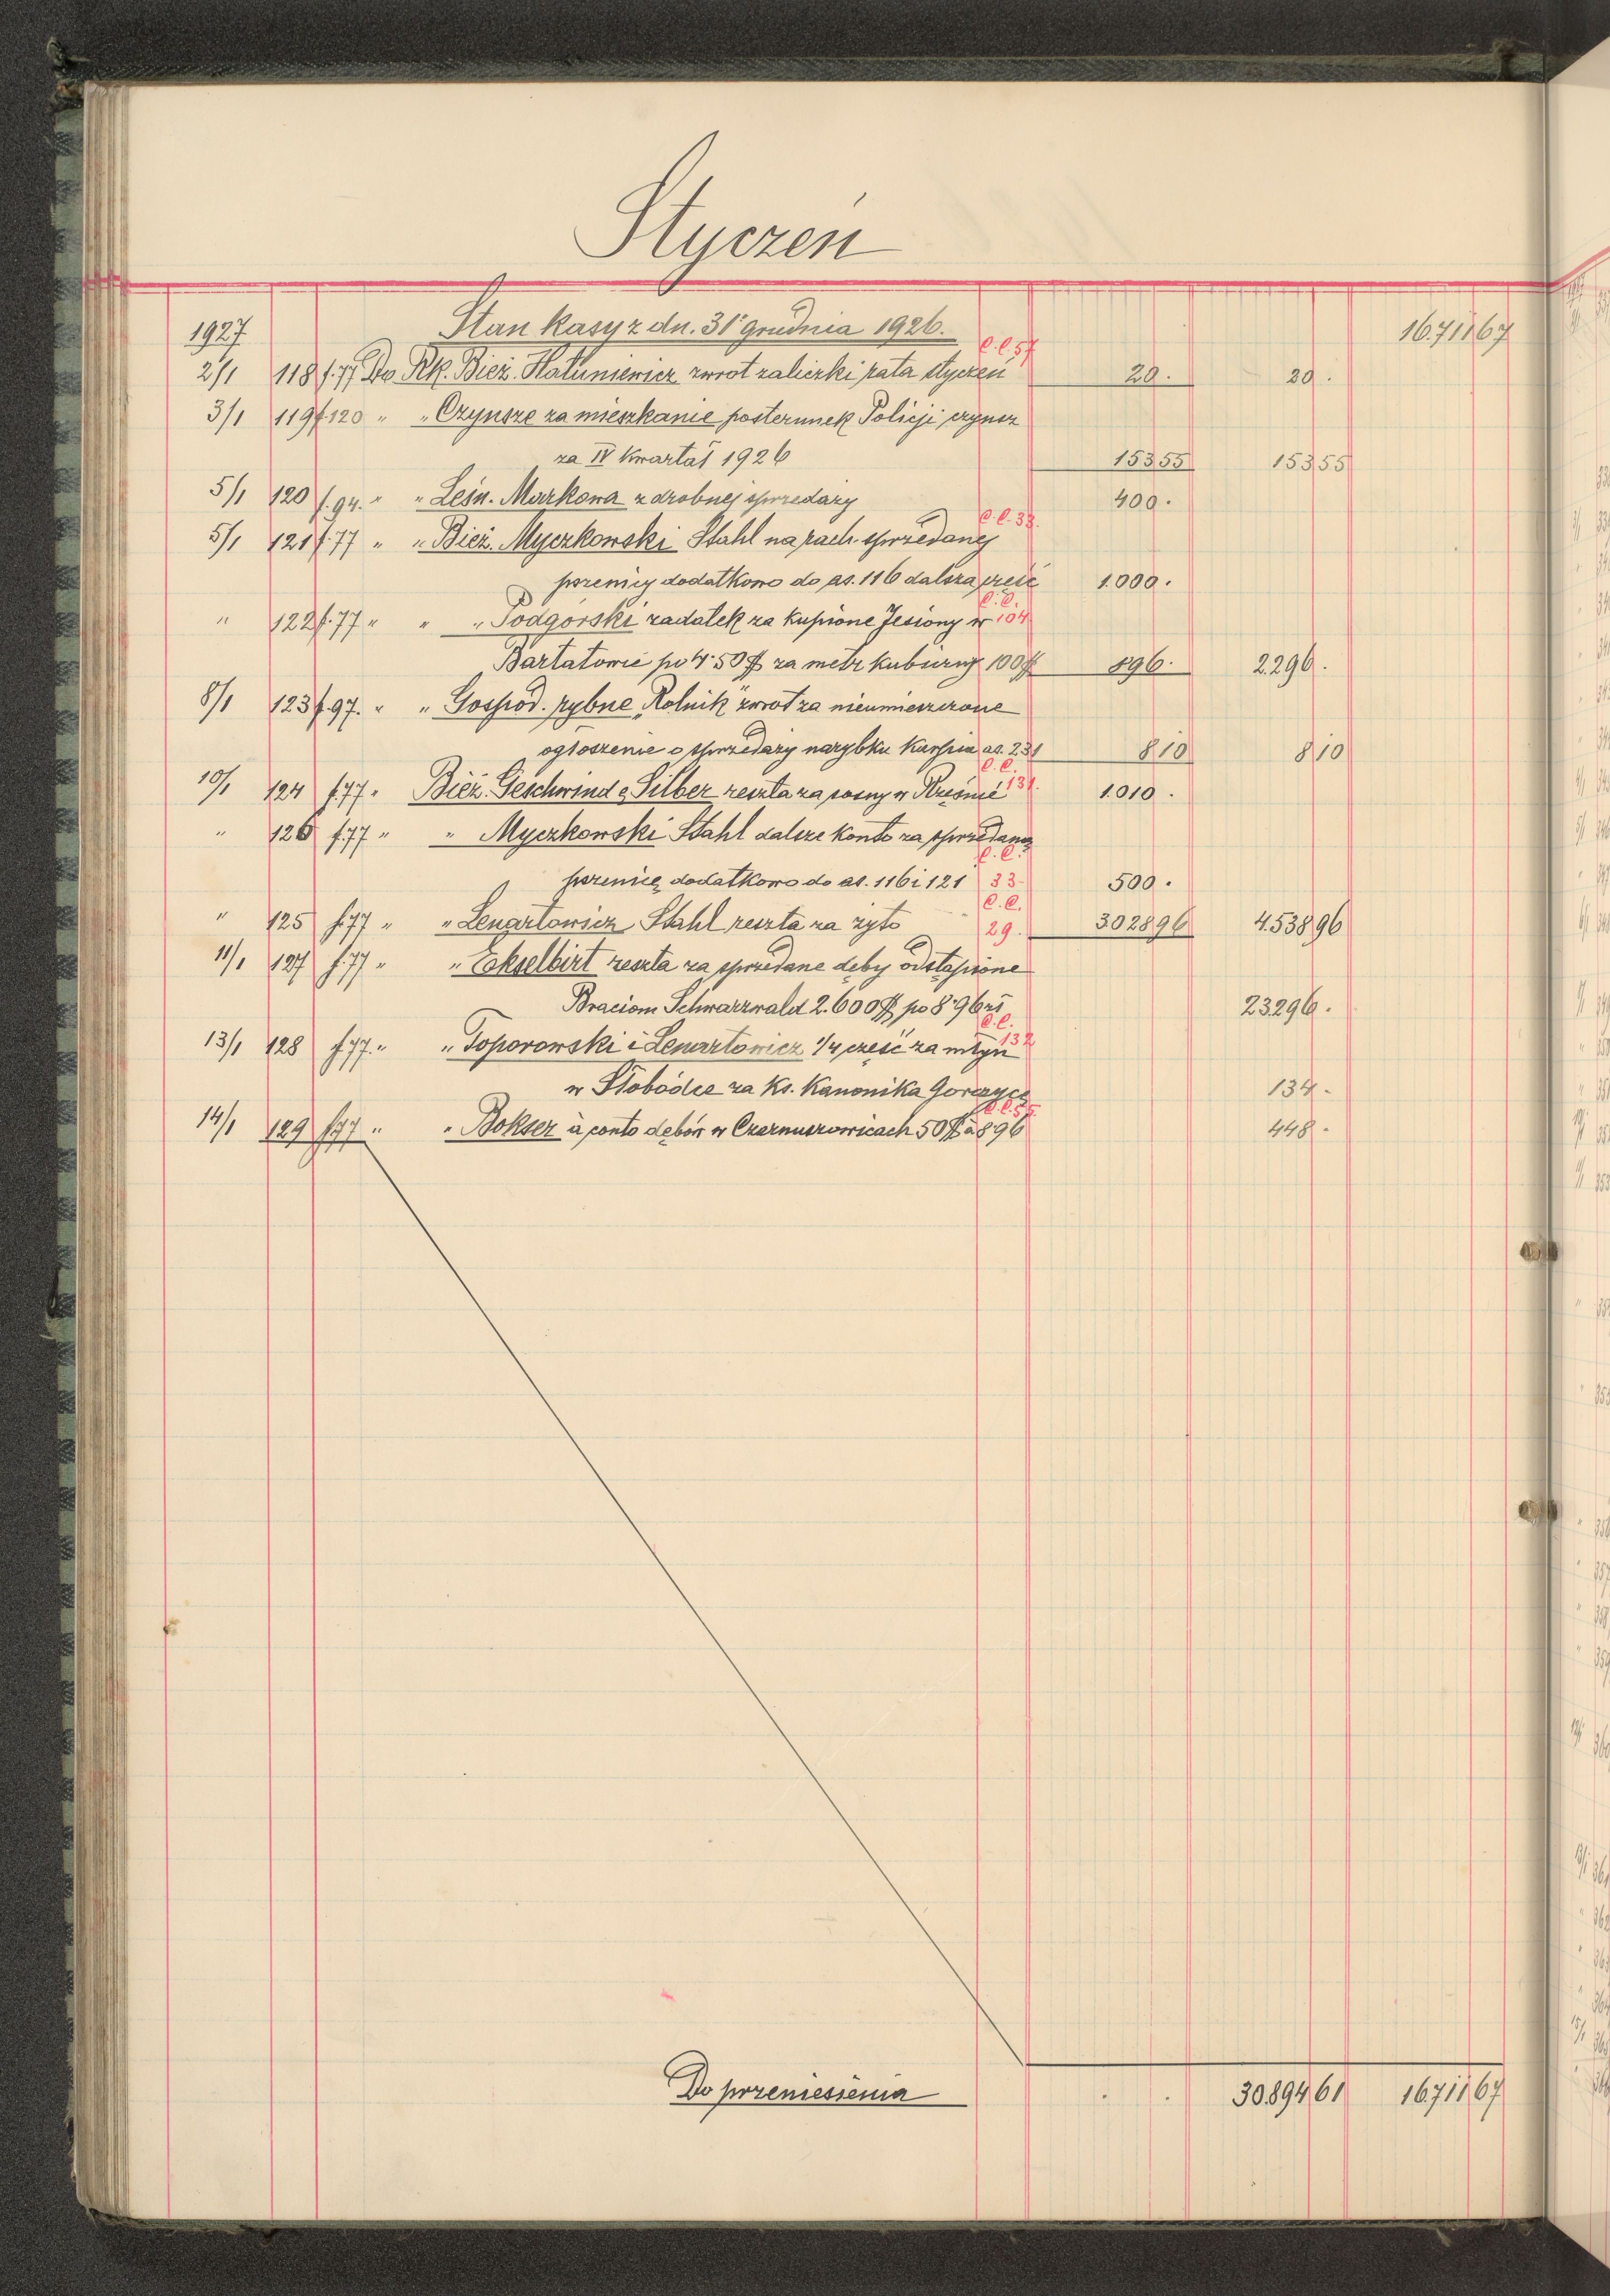 Styczeń
1927 Stan kasy z dn. 31 grudnia 1926. 16.711 67
C.C. 57
2/1 118 f. 77 Do Rk. Bież. Hałuniewicz zwrot zaliczki rata styczeń 20. 20.
3/1 119 f. 120 " " Czynsze za mieszkanie posterunek Policji czynsz
za IV kwartał 1926 153 55 153 55
5/1 120 f. 94. " " Leśn. Markowa z drobnej sprzedaży 400.
C.C. 33.
5/1 121 f. 77 " " Bież. Myczkowski Stahl na rach. sprzedanej
pszenicy dodatkowo do as. 116 dalsza część 1.000.
C.C.
" 122 f. 77 " " " Podgórski zadatek za kupione Jesiony w 104
Bartatowie po 4.50 $ za metr kubiczny 100 $ 896. 2.296.
8/1 123 f. 97. " " Gospod. rybne "Rolnik" zwrot za nieumieszczone
ogłoszenie o sprzedaży narybku karpia as. 231 8 10 8 10
C.C.
10/1 124 f. 77 " Bież. Geschwind & Silber reszta za sosny w 131. 1.010.
" 126 f. 77 " " Myczkowski Stahl dalsze konto za sprzedaną
C.C.
pszenicę dodatkowo do as. 116 i 121 33 500.
C.C.
" 125 f. 77 " " Lenartowicz Stahl reszta za żyto 29. 3.028 96 4.538 96
11/1 127 f. 77 " " Ekselbirt reszta za sprzedane dęby odstąpione
Braciom Schwarzwald 2.600 $ po 8.96 zł 23.296.
C.C.
13/1 128 f. 77. " " Toporowski i Lenartowicz 1/4 część za młyn 132
w Słobódce za Ks. Kanonika Gorzycę 134.
C.C. 55.
14/1 129 f. 77 " " Bokser à conto dębów w Czarnuszowicach 50 $ à 8 96 448.
Do przeniesienia . . 30.894 61 16.711 67